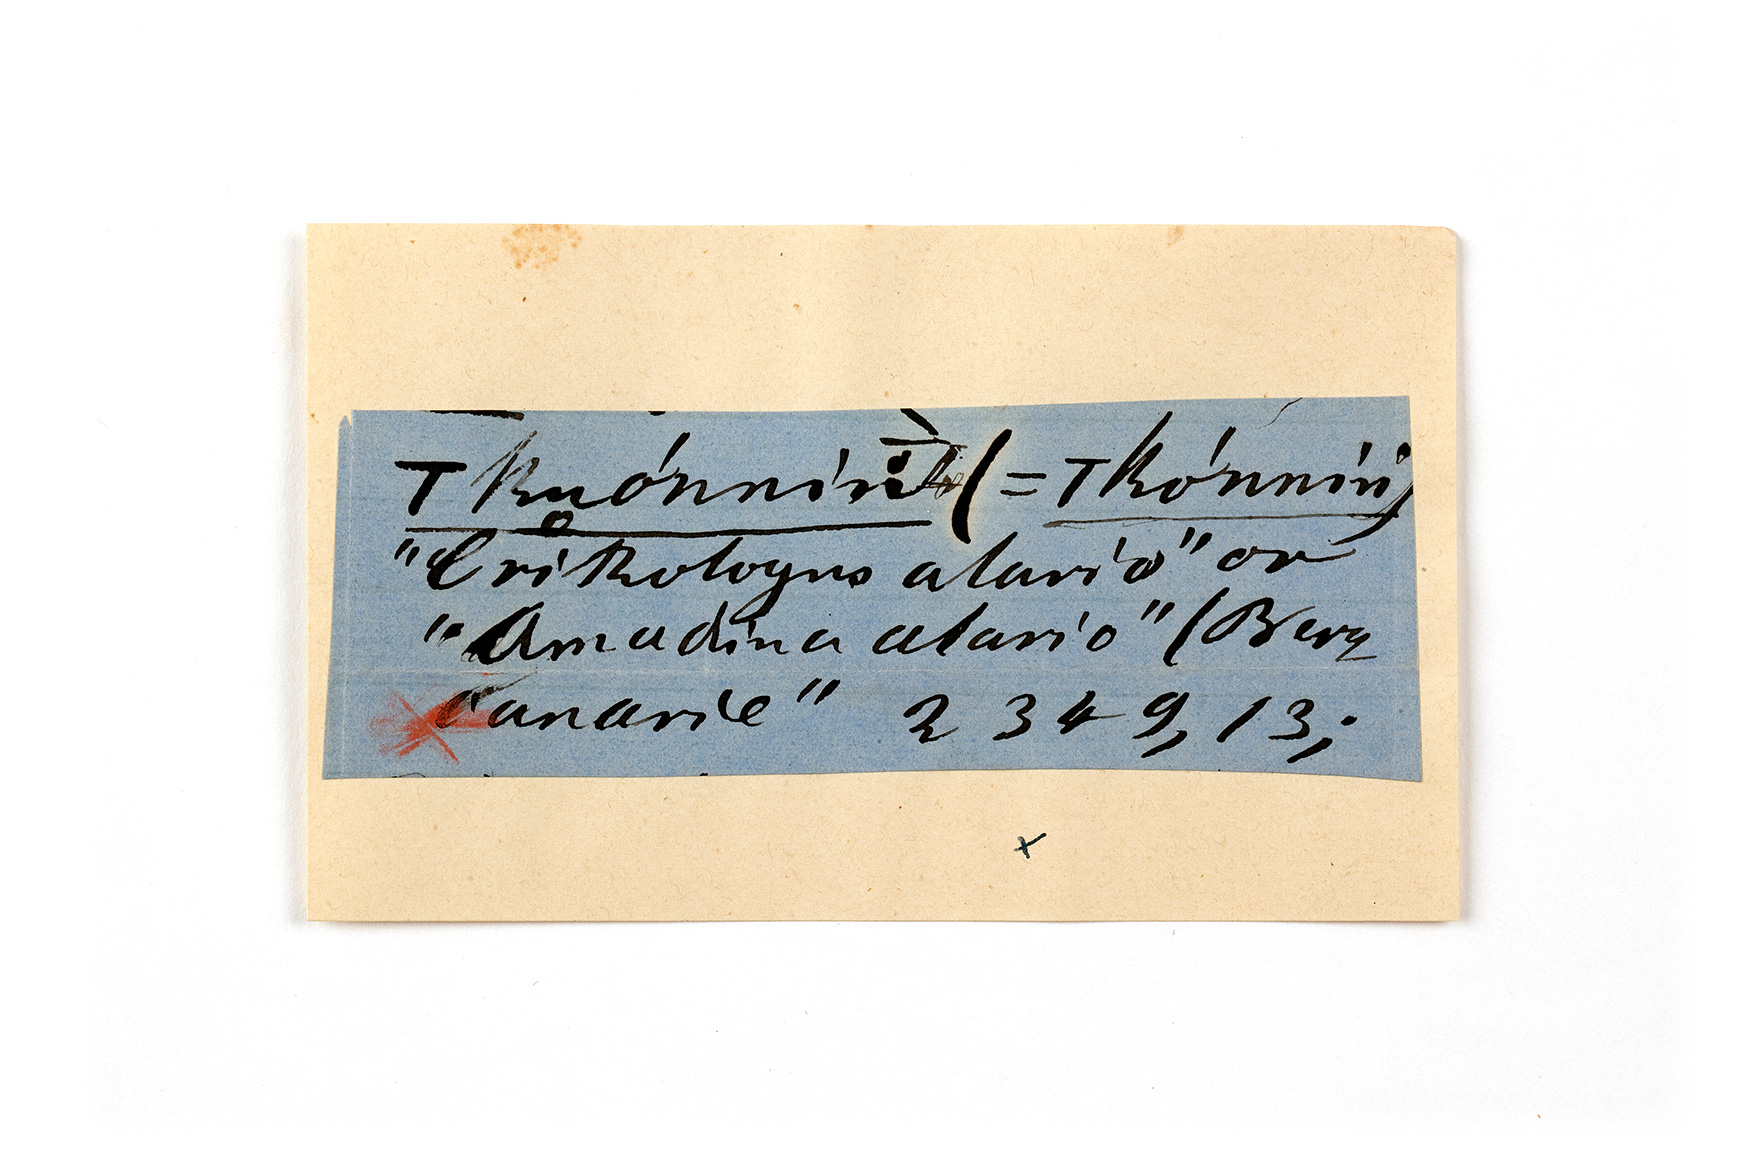 Tkuónníṅ (= Tkónníṅ)
"Crithologus alario" or
"Amadina alario" (Berg
Canarie" 2349, 13;
x